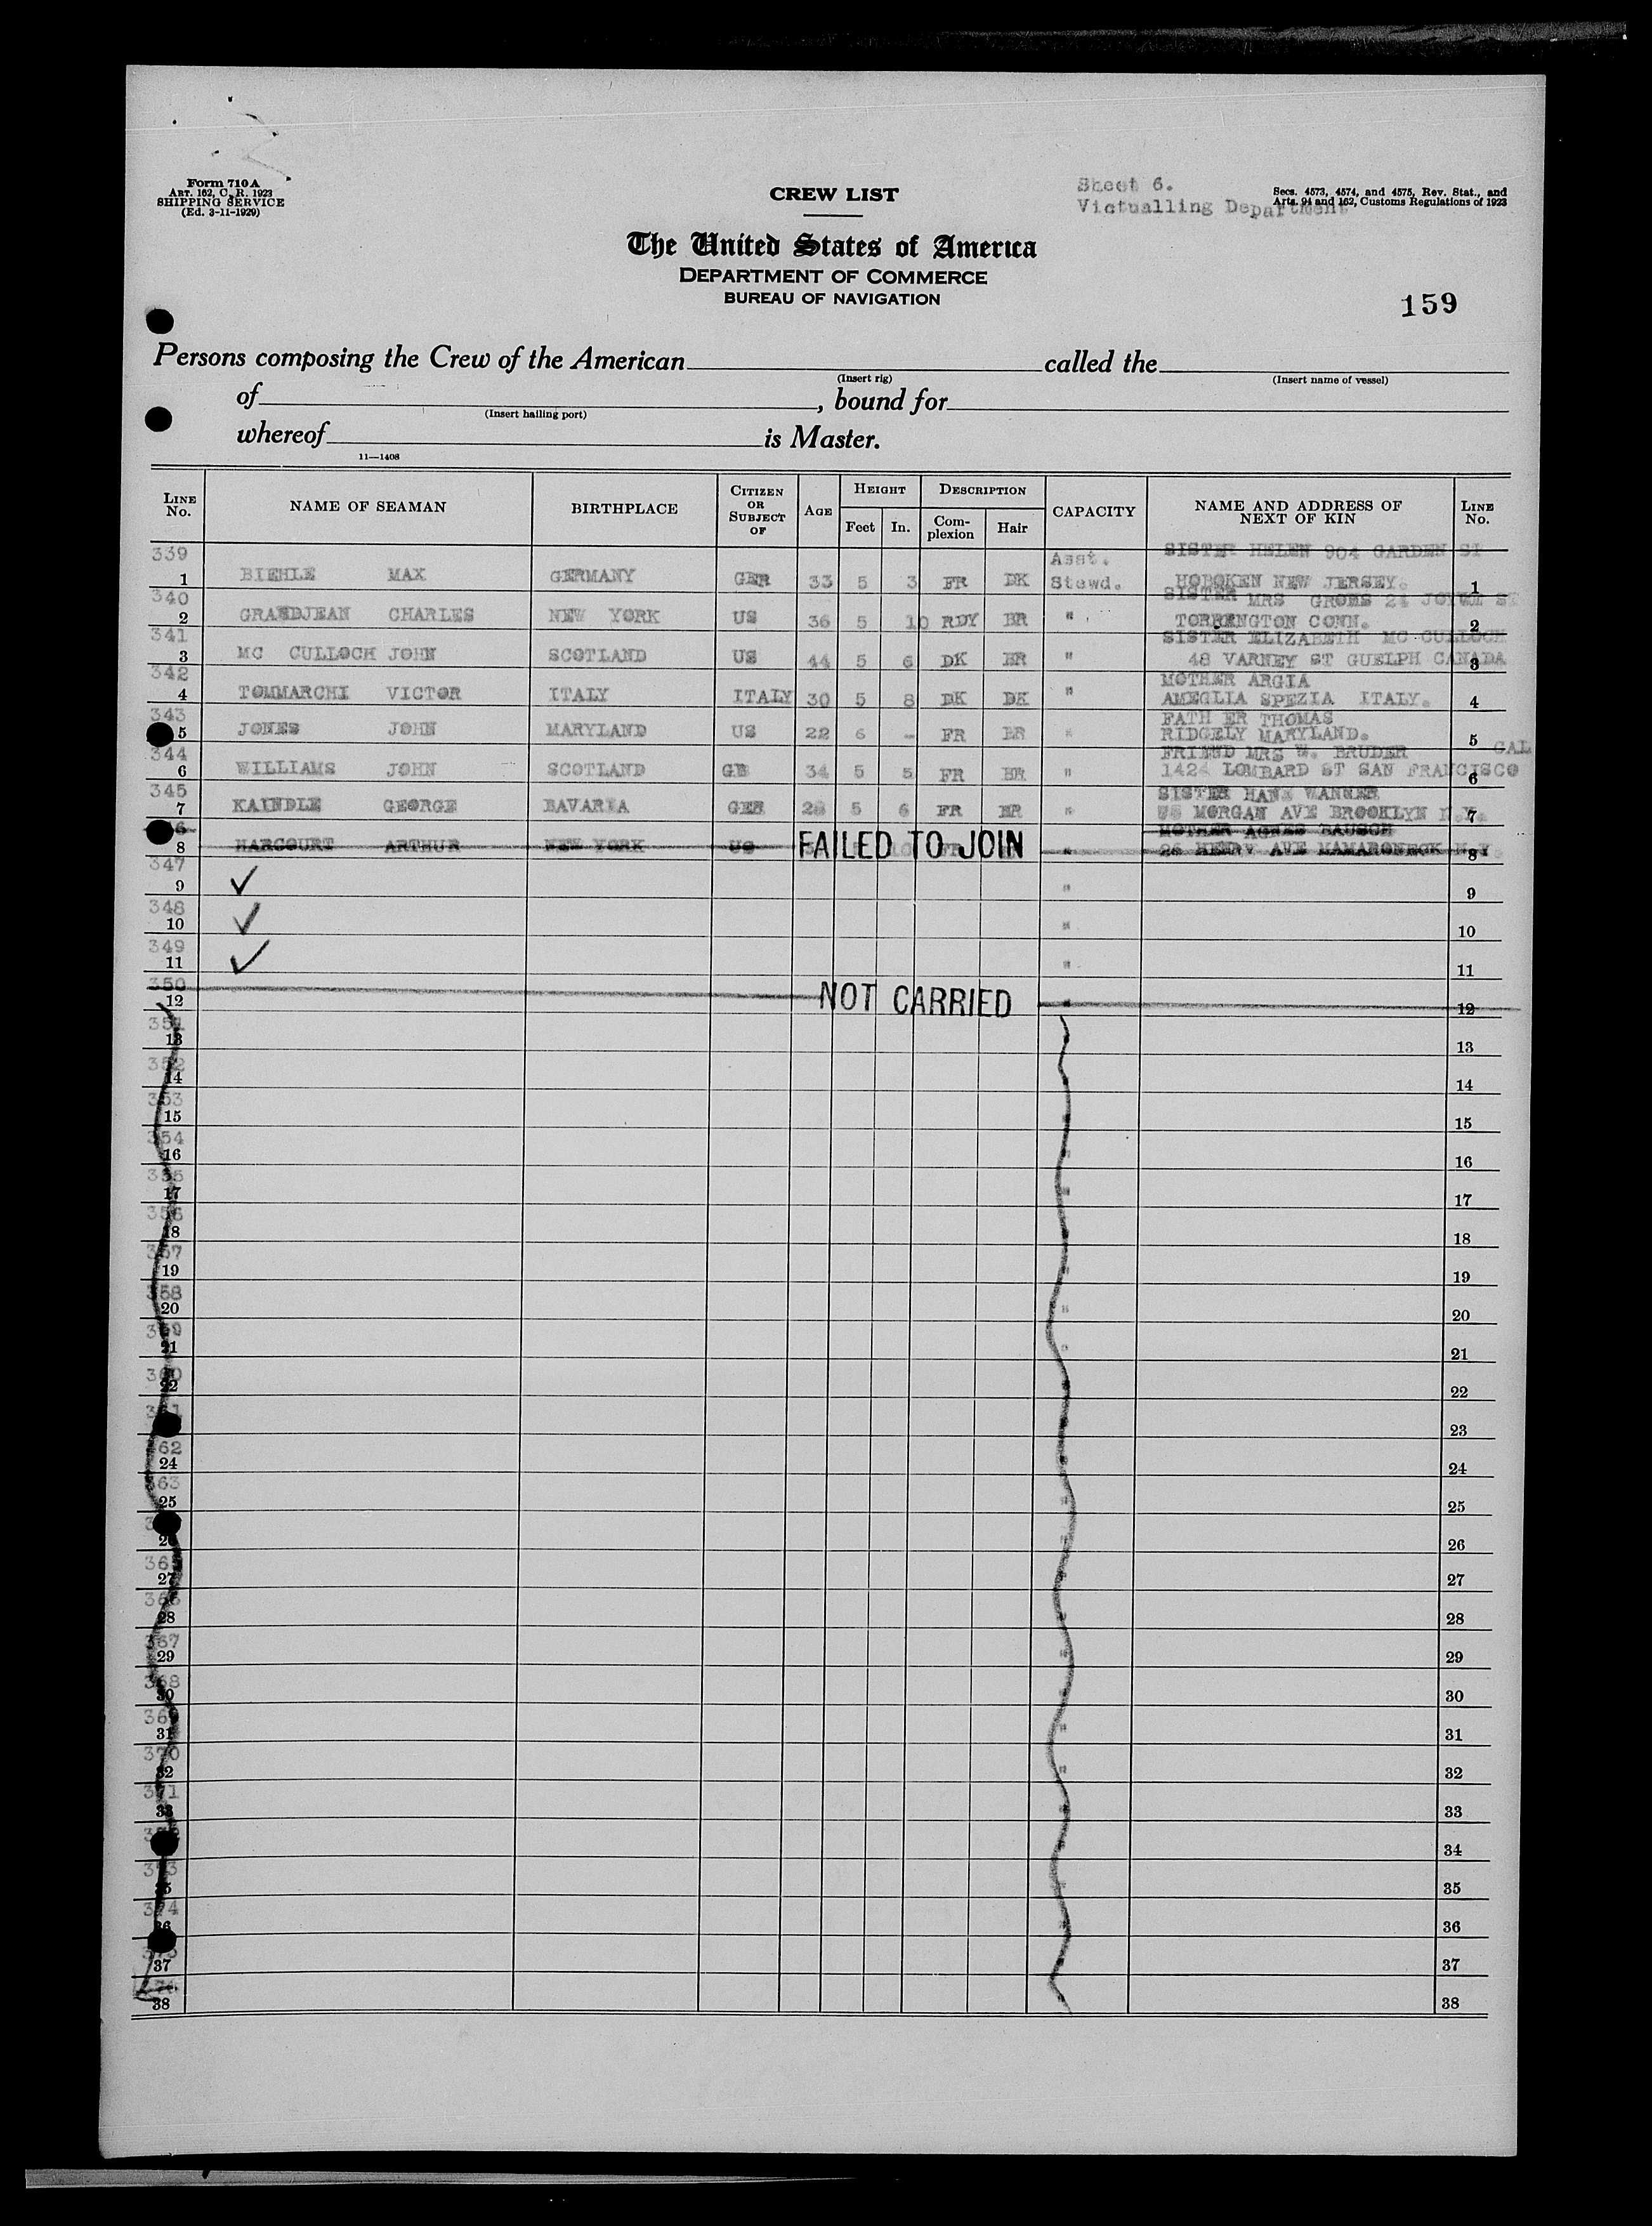 Form 710 A
ART. 162, C. R. 1923
SHIPPING SERVICE
(Ed. 3-11-1929)
CREW LIST
Sheet 6.
Victualling Department
Secs. 4573, 4574, and 4575, Rev. Stat., and
Arts. 94 and 162, Customs Regulations of 1923
The United States of America
DEPARTMENT OF COMMERCE
BUREAU OF NAVIGATION
159
Persons composing the Crew of the American called the
(Insert rig) (Insert name of vessel)
of , bound for
(Insert hailing port)
whereof is Master.
11—1408
LINE No. NAME OF SEAMAN BIRTHPLACE CITIZEN OR SUBJECT OF AGE HEIGHT Feet In. DESCRIPTION Complexion Hair CAPACITY NAME AND ADDRESS OF NEXT OF KIN LINE No.
339 Asst. SISTER HELEN 904 GARDEN ST
1 BIEHLE MAX GERMANY GER 33 5 3 FR DK Stewd. HOBOKEN NEW JERSEY. 1
340 SISTER MRS 24 ST
2 GRANDJEAN CHARLES NEW YORK US 36 5 10 RDY BR " TORRENGTON CONN. 2
341 SISTER ELIZABETH MC CULLOCH
3 MC CULLOCH JOHN SCOTLAND US 44 5 6 DK BR " 48 VARNEY ST GUELPH CANADA 3
342 MOTHER ARGIA
4 TOMMARCHI VICTOR ITALY ITALY 30 5 8 DK DK " AMEGLIA SPEZIA ITALY. 4
343 FATH ER THOMAS
5 JONES JOHN MARYLAND US 22 6 - FR BR " RIDGELY MARYLAND. 5
344 FRIEND MRS W. BRUDER CAL
6 WILLIAMS JOHN SCOTLAND GB 34 5 5 FR BR " 1424 LOMBARD ST SAN FRANCISCO 6
345 SISTER HANS WANNER
7 KAINDLE GEORGE BAVARIA GER 28 5 6 FR BR " MORGAN AVE BROOKLYN N.Y. 7
MOTHER AGNES RAUSCH
8 HARCOURT ARTHUR NEW YORK US FAILED TO JOIN " 26 HENRY AVE MAMARONECK N.Y. 8
347
9 ✓ " 9
348
10 ✓ " 10
349
11 ✓ " 11
350
12 NOT CARRIED " 12
351
13 13
352
14 14
353
15 15
354
16 16
355
17 17
356
18 18
357
19 19
358
20 20
359
21 21
360
22 22
23
62
24 24
63
25 25
26 26
365
27 27
366
28 28
367
29 29
368
30 30
369
31 31
370
32 32
371
33 33
34
373
35 35
374
36 36
37 37
38 38